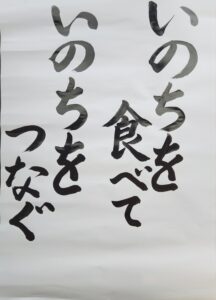 いのちを
食べて
いのちを
つなぐ